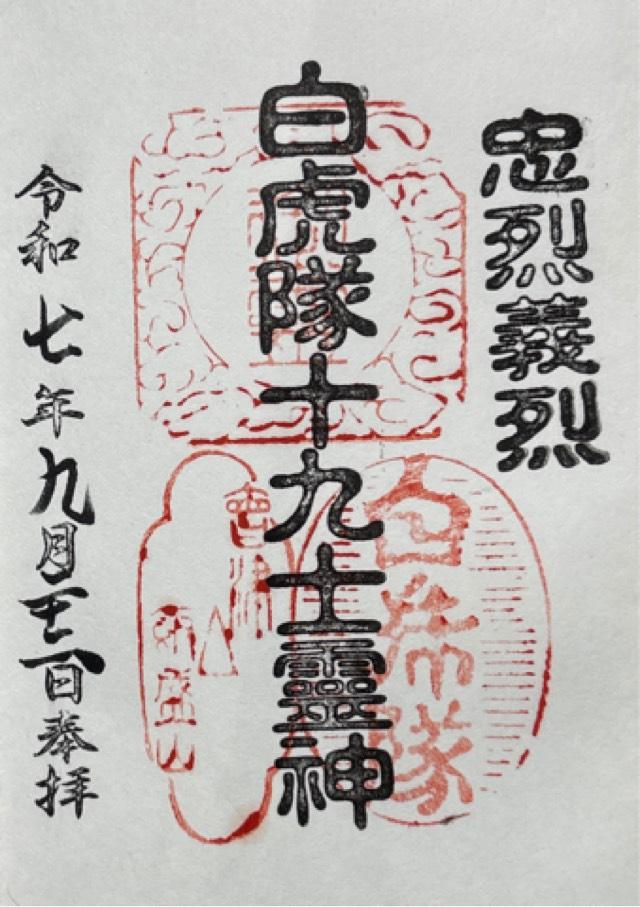 忠烈義烈
白虎隊十九士靈神
白虎隊
會津
飯盛山
令和七年九月日奉拝